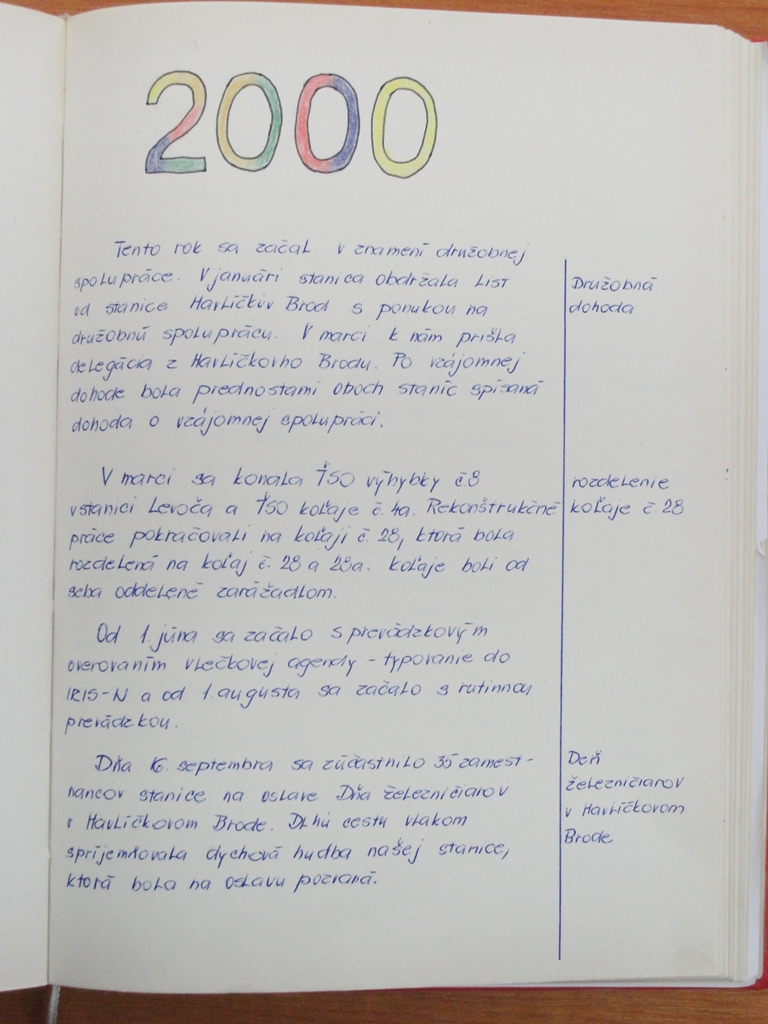 2000
Tento rok sa začal v znamení družobnej
spolupráce. V januári stanica obdržala list
od stanice Havlíčkův Brod s ponukou na
družobnú spoluprácu. V marci k nám prišla
delegácia z Havlíčkovho Brodu. Po vzájomnej
dohode bola prednostami oboch staníc spísaná
dohoda o vzájomnej spolupráci.
Družobná
dohoda
V marci sa konala ŤSO výhybky č.8
vstanici Levoča a ŤSO koľaje č. 4a. Rekonštrukčné
práce pokračovali na koľaji č. 28, ktorá bola
rozdelená na koľaj č. 28 a 28a. Koľaje boli od
seba oddelené zarážadlom.
rozdelenie
koľaje č. 28
Od 1. júna sa začalo s prevádzkovým
overovaním vlečkovej agendy - typovanie do
IRIS-N a od 1. augusta sa začalo s rutinnou
prevádzkou.
Dňa 16. septembra sa zúčastnilo 35 zamest-
nancov stanice na oslave Dňa železničiarov
v Havlíčkovom Brode. Dlhú cestu vlakom
spríjemňovala dychová hudba našej stanice,
ktorá bola na oslavu pozvaná.
Deň
železničiarov
v Havlíčkovom
Brode